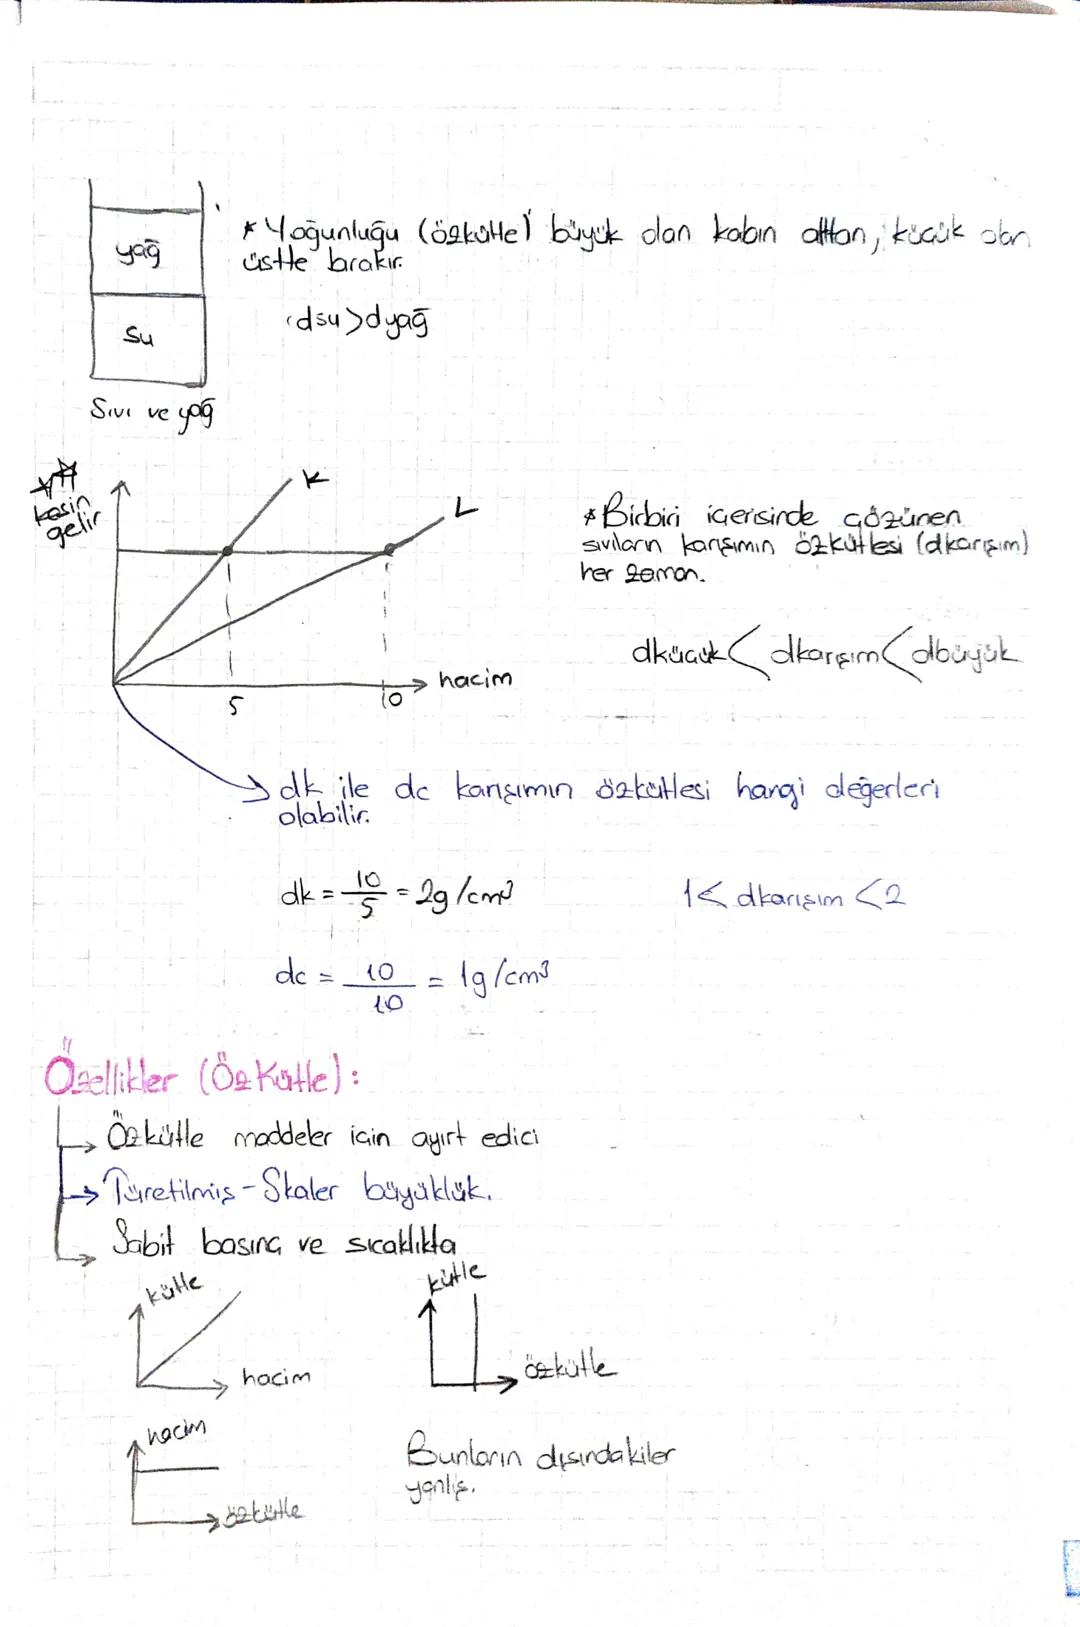 yağ
su
Sıvı ve yağ
* Yoğunluğu (özkütle) büyük olan kabın alttan, küçük olan
üstte bırakır.
dsu>dyağ
kesin
gelir
K
L
5
10
hacim
* Birbiri içerisinde çözünen
sıvıların karışımın özkütlesi (dkarışım)
her zaman.
dküçük < dkarışım < dbüyük
dk ile dc karışımın özkütlesi hangi değerleri
olabilir.
dk = 10/5 = 2g/cm³
1 < dkarışım < 2
dc = 10/10 = 1g/cm³
Özellikler (Öz Kütle):
→ Özkütle maddeler için ayırt edici
→ Türetilmiş - Skaler büyüklük.
→ Sabit basınç ve sıcaklıkta
kütle
hacim
kütle
özkütle
hacim
özkütle
Bunların dışındakiler
yanlış.